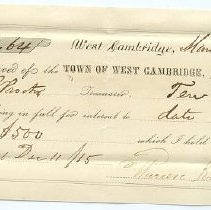 64 West Cambridge, Mar
ved of the TOWN OF WEST CAMBRIDGE,
Treasurer, Ten
ing in full for interest to date
$500 which I hold
Dec 11/15
Warren